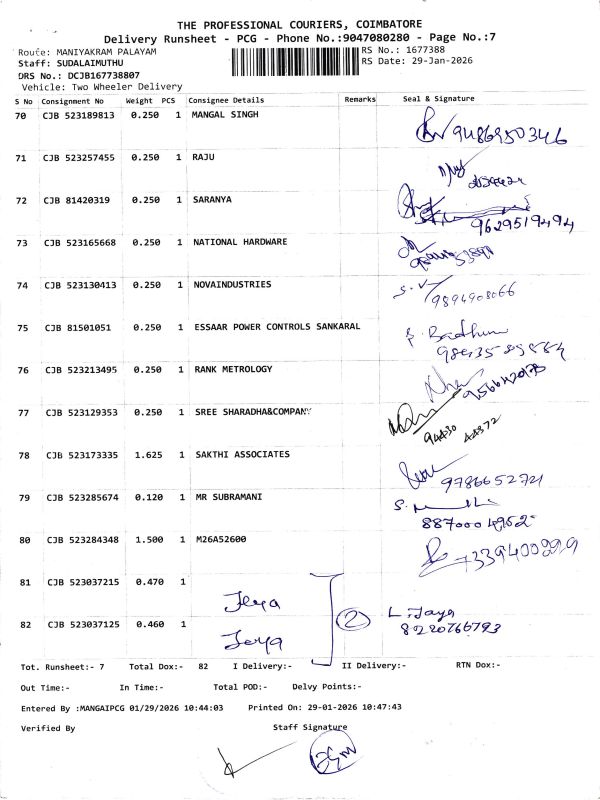 THE PROFESSIONAL COURIERS, COIMBATORE
Delivery Runsheet - PCG - Phone No.:9047080280 - Page No.:7
Route: MANIYAKRAM PALAYAM
RS No.: 1677388
Staff: SUDALAIMUTHU
RS Date: 29-Jan-2026
DRS No.: DCJB167738807
Vehicle: Two Wheeler Delivery
S No Consignment No Weight PCS Consignee Details Remarks Seal & Signature
70 CJB 523189813 0.250 1 MANGAL SINGH 9486950346
71 CJB 523257455 0.250 1 RAJU
72 CJB 81420319 0.250 1 SARANYA 9629519494
73 CJB 523165668 0.250 1 NATIONAL HARDWARE
74 CJB 523130413 0.250 1 NOVAINDUSTRIES S. V 9894908066
75 CJB 81501051 0.250 1 ESSAAR POWER CONTROLS SANKARAL
76 CJB 523213495 0.250 1 RANK METROLOGY
77 CJB 523129353 0.250 1 SREE SHARADHA&COMPANY 94430 44372
78 CJB 523173335 1.625 1 SAKTHI ASSOCIATES 9786652721
79 CJB 523285674 0.120 1 MR SUBRAMANI 8870004952
80 CJB 523284348 1.500 1 M26A52600
81 CJB 523037215 0.470 1 Jeya
82 CJB 523037125 0.460 1 Jeya 2 L. Jaya 8220766793
Tot. Runsheet:- 7 Total Dox:- 82 I Delivery:- II Delivery:- RTN Dox:-
Out Time:- In Time:- Total POD:- Delvy Points:-
Entered By :MANGAIPCG 01/29/2026 10:44:03 Printed On: 29-01-2026 10:47:43
Verified By Staff Signature